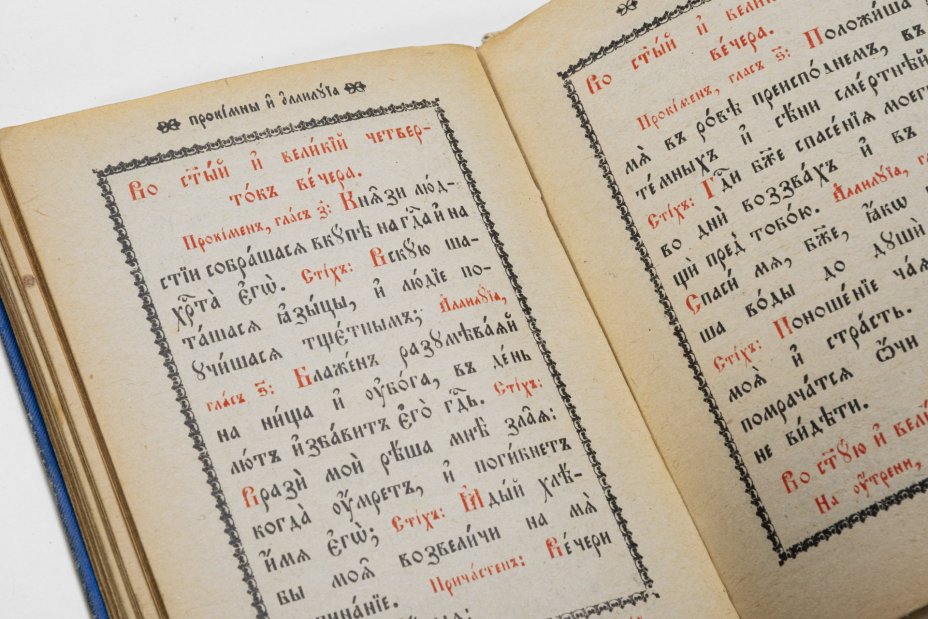 прокі́мны и҆ а҆ллилꙋ́їа
Во ст҃ы́й и҆ вели́кїй четвер-
то́къ ве́чера.
Прокі́менъ, гла́съ з҃: Кнѧ̑зи лю́д-
стїи собра́шасѧ вкꙋ́пѣ на гд҇а и҆ на
хрⷭ҇та̀ є҆гѡ̀. Сті́хъ: Вскꙋ́ю ша-
та́шасѧ ꙗ҆зы́цы, и҆ лю́дїе по-
ꙋчи́шасѧ тщє́тнымъ; А҆ллилꙋ́їа,
гла́съ ѕ҃: Блаже́нъ разꙋмѣва́ѧй
на ни́ща и҆ ᲂу҆бо́га, въ де́нь
лю́тъ и҆зба́витъ є҆го̀ гдⷭ҇ь. Сті́хъ:
Вразѝ моѝ рѣ́ша мнѣ̀ зла̑ѧ:
когда̀ ᲂу҆́мретъ, и҆ поги́бнетъ
и҆́мѧ є҆гѡ̀; Сті́хъ: Ꙗ҆ды́й хлѣ́-
бы моѧ̑ возвели́чи на мѧ̀
Прича́стенъ: Ве́чери
Во ст҃ы́й и҆
ве́чера.
Прокі́менъ, гла́съ ѕ҃: Положи́ша
мѧ̀ въ ро́вѣ преиспо́днемъ, въ
те́мныхъ и҆ сѣ́ни сме́ртнѣй
Сті́хъ: Гдⷭ҇и бж҃е спасе́нїѧ моегѡ̀
во днѝ воззва́хъ и҆ въ
щѝ пред̾ тобо́ю. А҆ллилꙋ́їа,
Спаси́ мѧ, бж҃е, ꙗ҆́кѡ
ша во́ды до дꙋшѝ
Сті́хъ: Поноше́нїе ча́ѧ
моѧ̀ и҆ стра́сть.
помрача́тсѧ ѻ҆́чи
не ви́дѣти.
Во ст҃ꙋ́ю и҆
На ᲂу҆́трени,